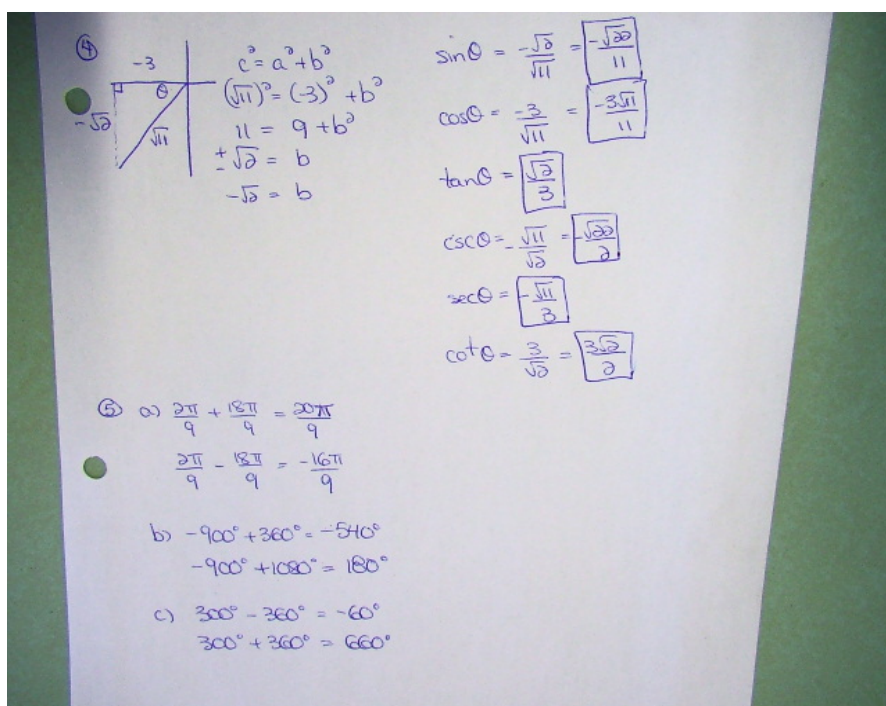 ④
-3
θ
-√2
√11
c² = a² + b²
(√11)² = (-3)² + b²
11 = 9 + b²
±√2 = b
-√2 = b
sinθ = -√2/√11 = -√22/11
cosθ = -3/√11 = -3√11/11
tanθ = √2/3
cscθ = -√11/√2 = -√22/2
secθ = -√11/3
cotθ = 3/√2 = 3√2/2
⑤ a) 2π/9 + 18π/9 = 20π/9
2π/9 - 18π/9 = -16π/9
b) -900° + 360° = -540°
-900° + 1080° = 180°
c) 300° - 360° = -60°
300° + 360° = 660°